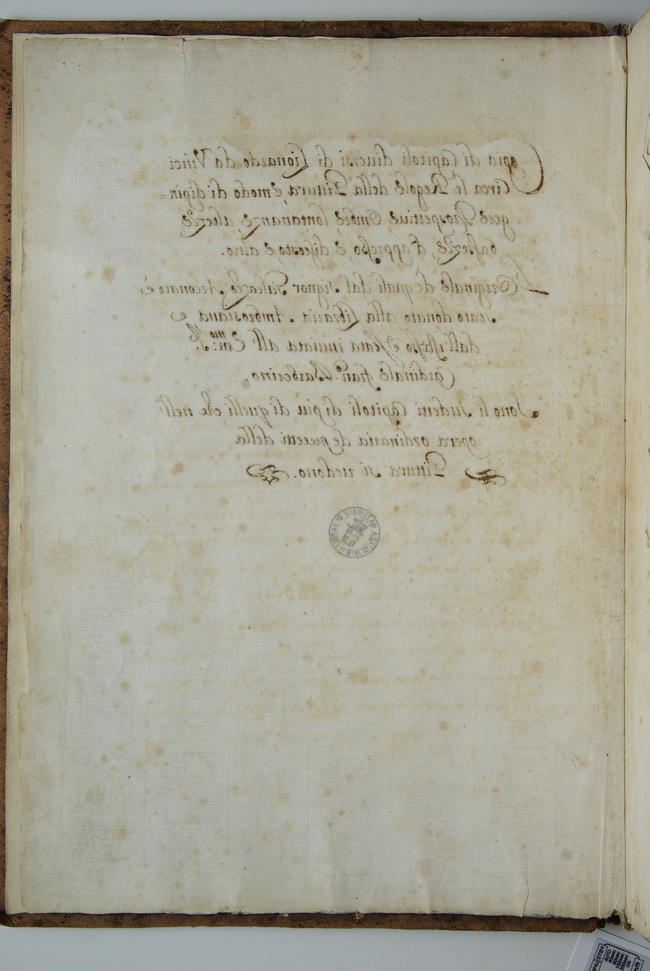 Copia di Capitoli diuersi di Lionardo da Vinci
Circa le Regole della Pittura, è modo di dipin=
gere Prospettiue, Ombre, lontananze, altezze,
bassezze, d'appresso è discosto è altro.
L'Originale de quali dal signor Galeazzo Arconati è
stato donato alla Libraria Ambrosiana
dall'istesso è stata inuiata all' Em.mo Sr.
Cardinale fran.º Barberino.
Sono li sudetti Capitoli di più di quelli, che nell'
opera ordinaria de precetti della
Pittura si uedono.